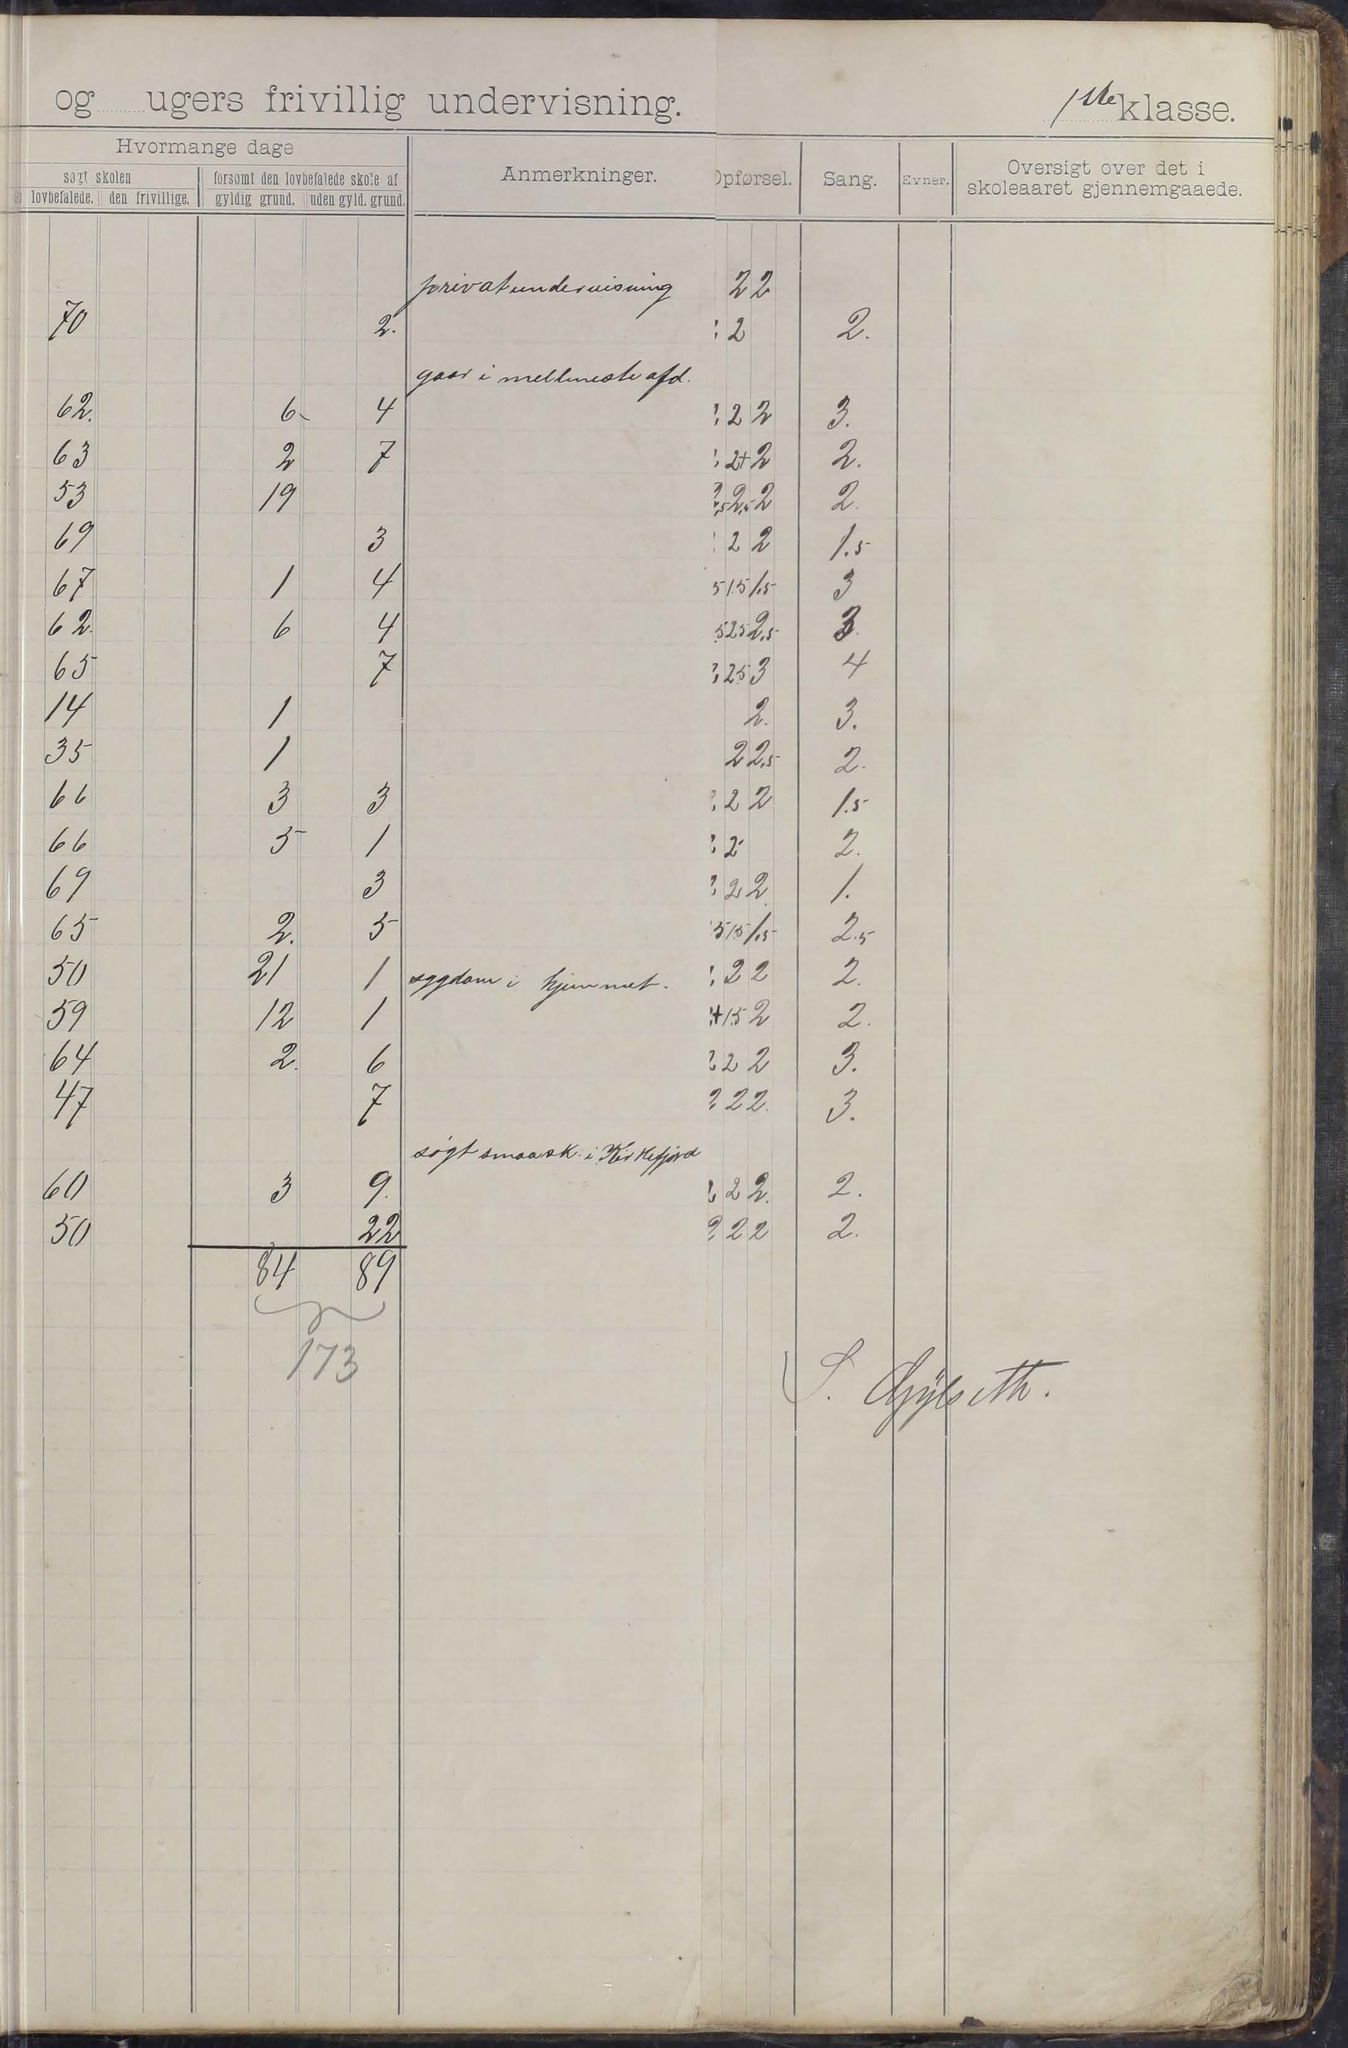 og ugers frivillig undervisning. 1ste klasse.
Hvormange dage
søgt skolen forsømt den lovbefalede skole af Anmerkninger. Opførsel. Sang. Evner. Oversigt over det i
lovbefalede. den frivillige. gyldig grund. uden gyld. grund. skoleaaret gjennemgaaede.
privatundervisning 2 2
70 2. 2 2.
gaar i mellemste afd.
62. 6 4 2 2 3.
63 2 7 2+ 2 2.
53 19 2,5 2 2.
69 3 2 2 1.5
67 1 4 1.5 1.5 3
62. 6 4 2.5 2.5 3.
65 7 2.5 3 4
14 1 2. 3.
35 1 2 2.5 2.
66 3 3 2 2 1.5
66 5 1 2 2.
69 3 2 2 1.
65 2. 5 1.5 1.5 2.5
50 21 1 sygdom i hjemmet. 2 2 2.
59 12 1 1.5 2 2.
64 2. 6 2 2 3.
47 7 2 2 3.
søgt smaask. i Kirkefjord
60 3 9. 2 2. 2.
50 22 2 2 2.
84 89
173
S. Gylseth.